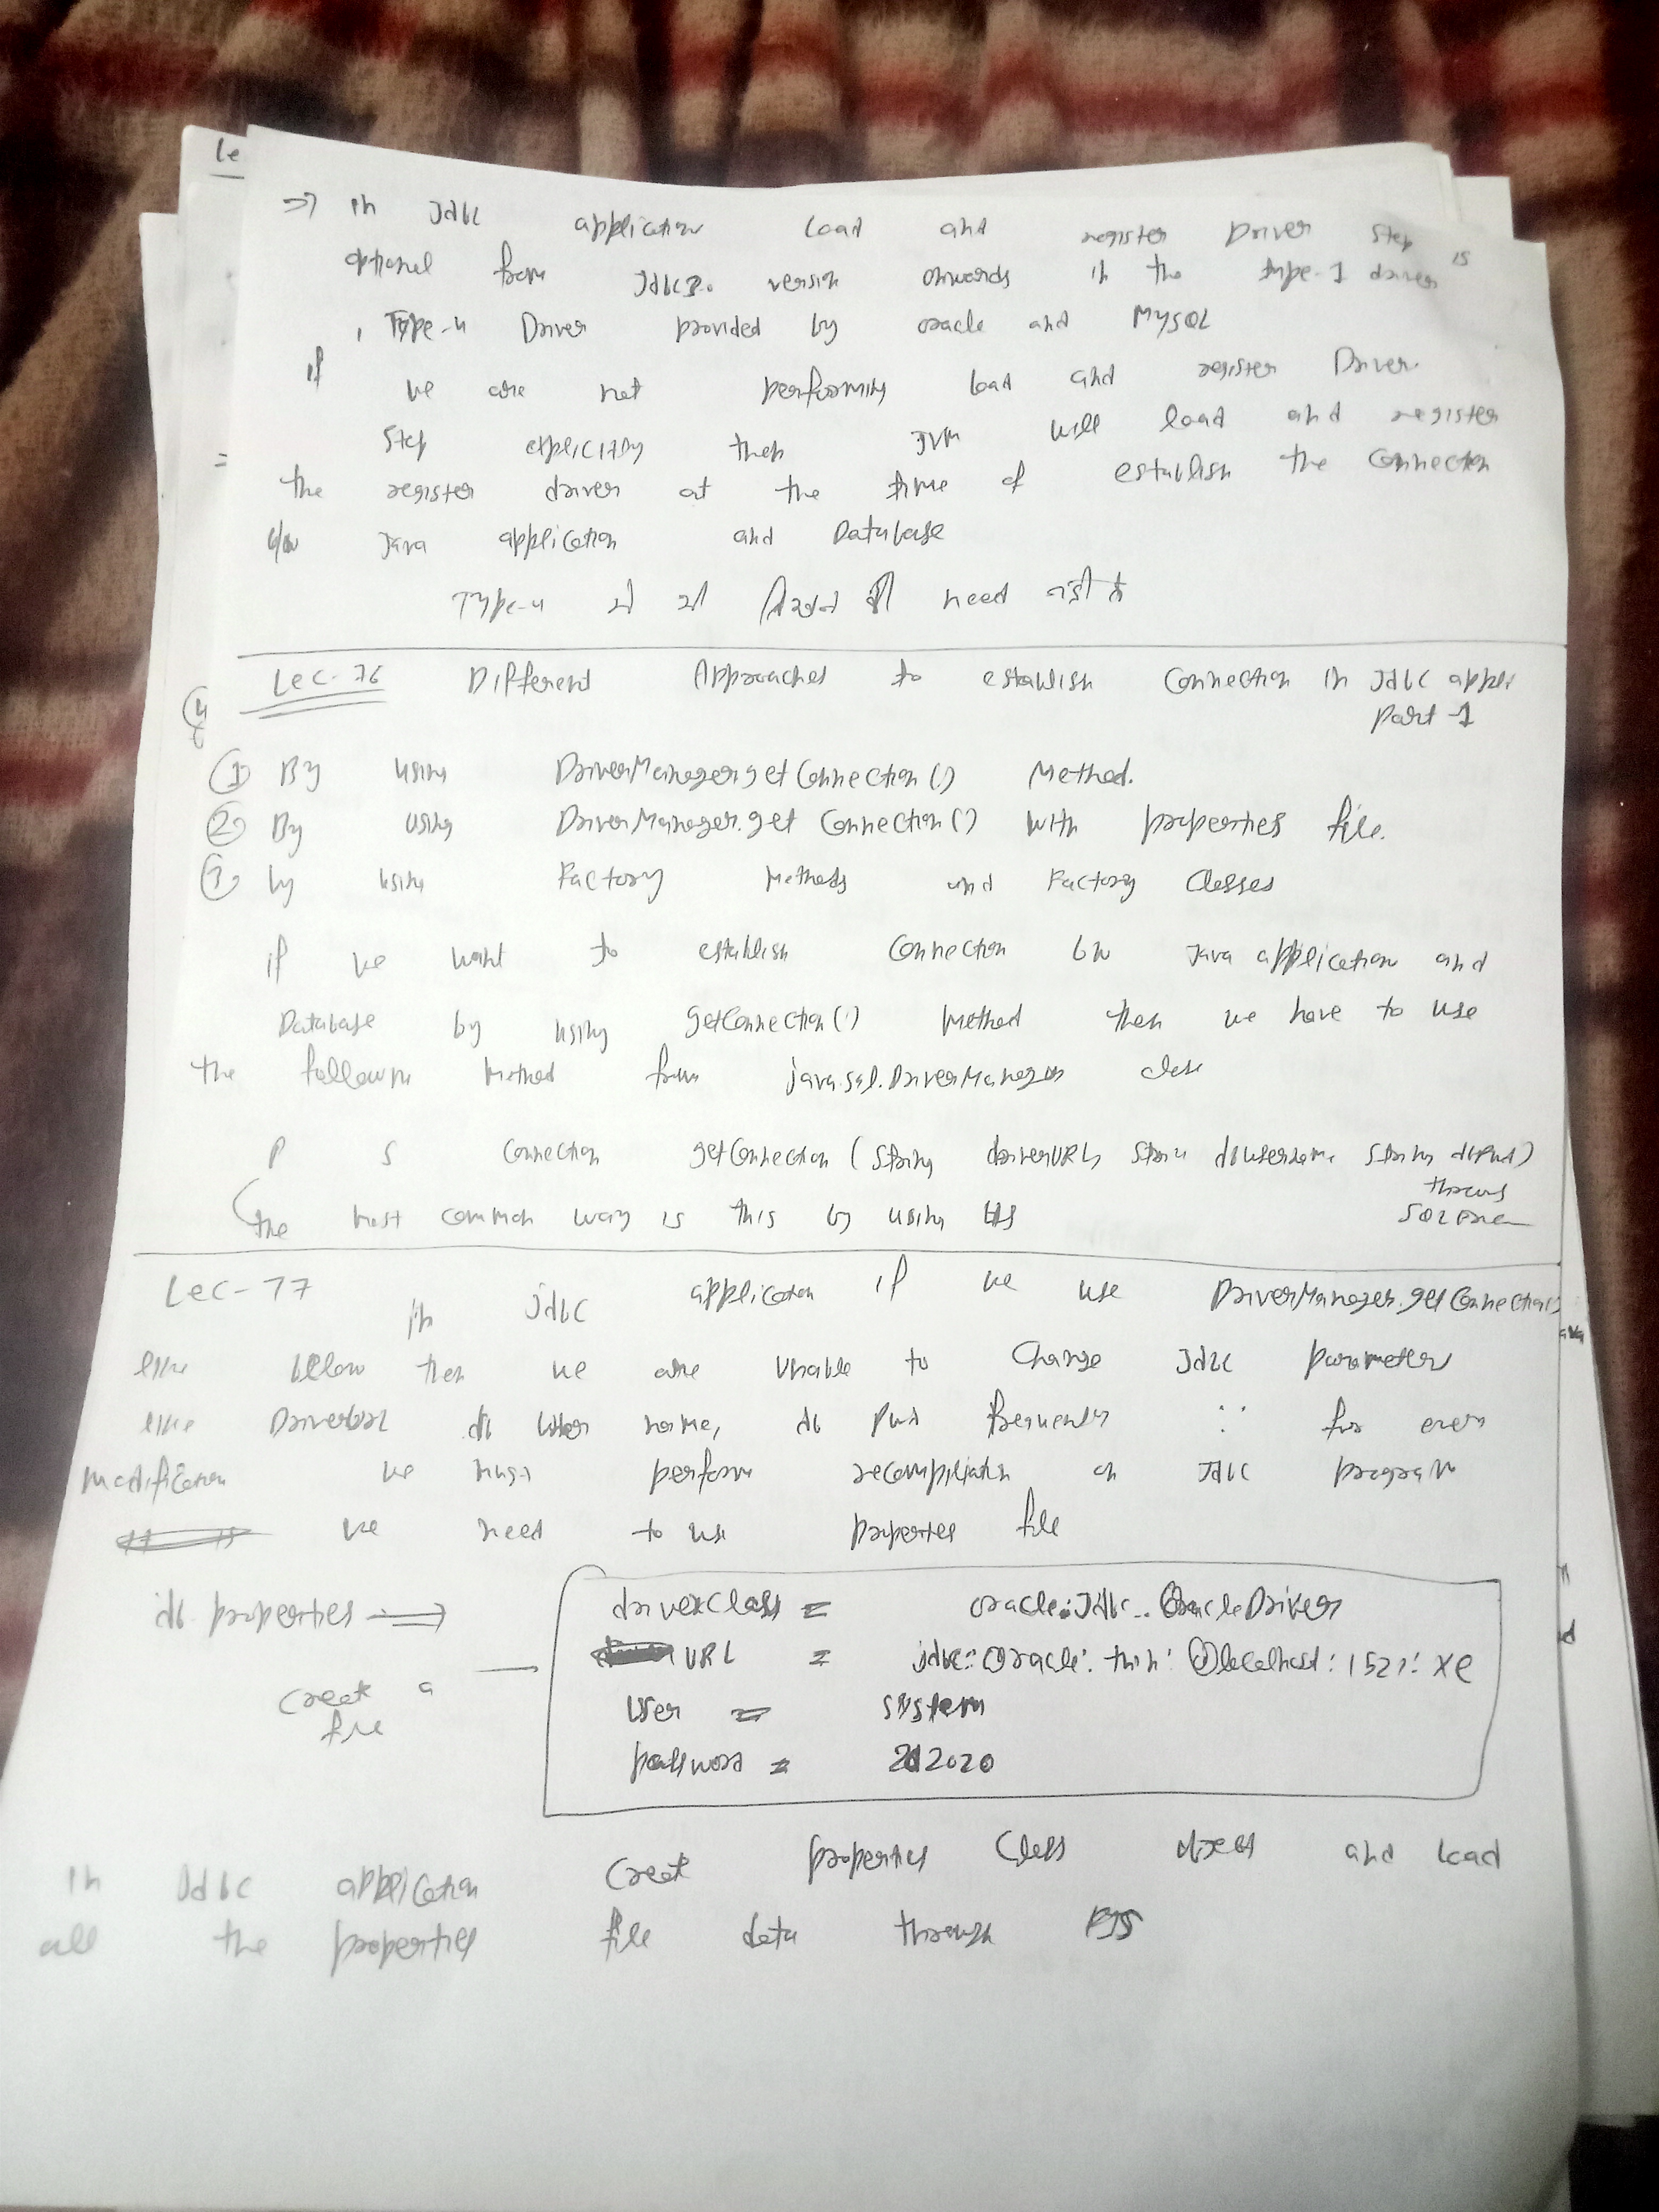 Le
=> in Jdbc application Load and register Driver step is
optional from Jdbc3.0 version onwards in the type-1 driver
, Type-4 Driver provided by oracle and MySQL
if we are not performing load and register Driver
step explicitly then JVM will load and register
the register driver at the time of establish the Connection
b/w Java application and Database
Type-4 need नहीं है
Lec-76 Different Approaches to establish Connection in Jdbc appli
part-1
① By using DriverManager.getConnection() Method.
② By using DriverManager.get Connection() with properties file.
③ by using Factory Methods and Factory Classes
if we want to establish Connection b/w Java application and
Database by using getConnection() Method then we have to use
the following Method from java.sql.DriverManager class
P S Connection getConnection (String driverURL, String dbusername, String dbPwd)
throws
the most common way is this by using
Lec-77 in Jdbc application if we use DriverManager.getConnection()
like below then we are unable to Change Jdbc parameter
like Driverurl db User name, db Pwd frequently ∵ for every
modification we must perform recompilation on Jdbc program
we need to use properties file
db properties => driverClass = oracle.Jdbc..OracleDriver
URL = jdbc:oracle:thin:@localhost:1521:xe
Create a
file
User = system
password = 2020
in Jdbc application Create properties Class object and Load
all the properties file data through FIS